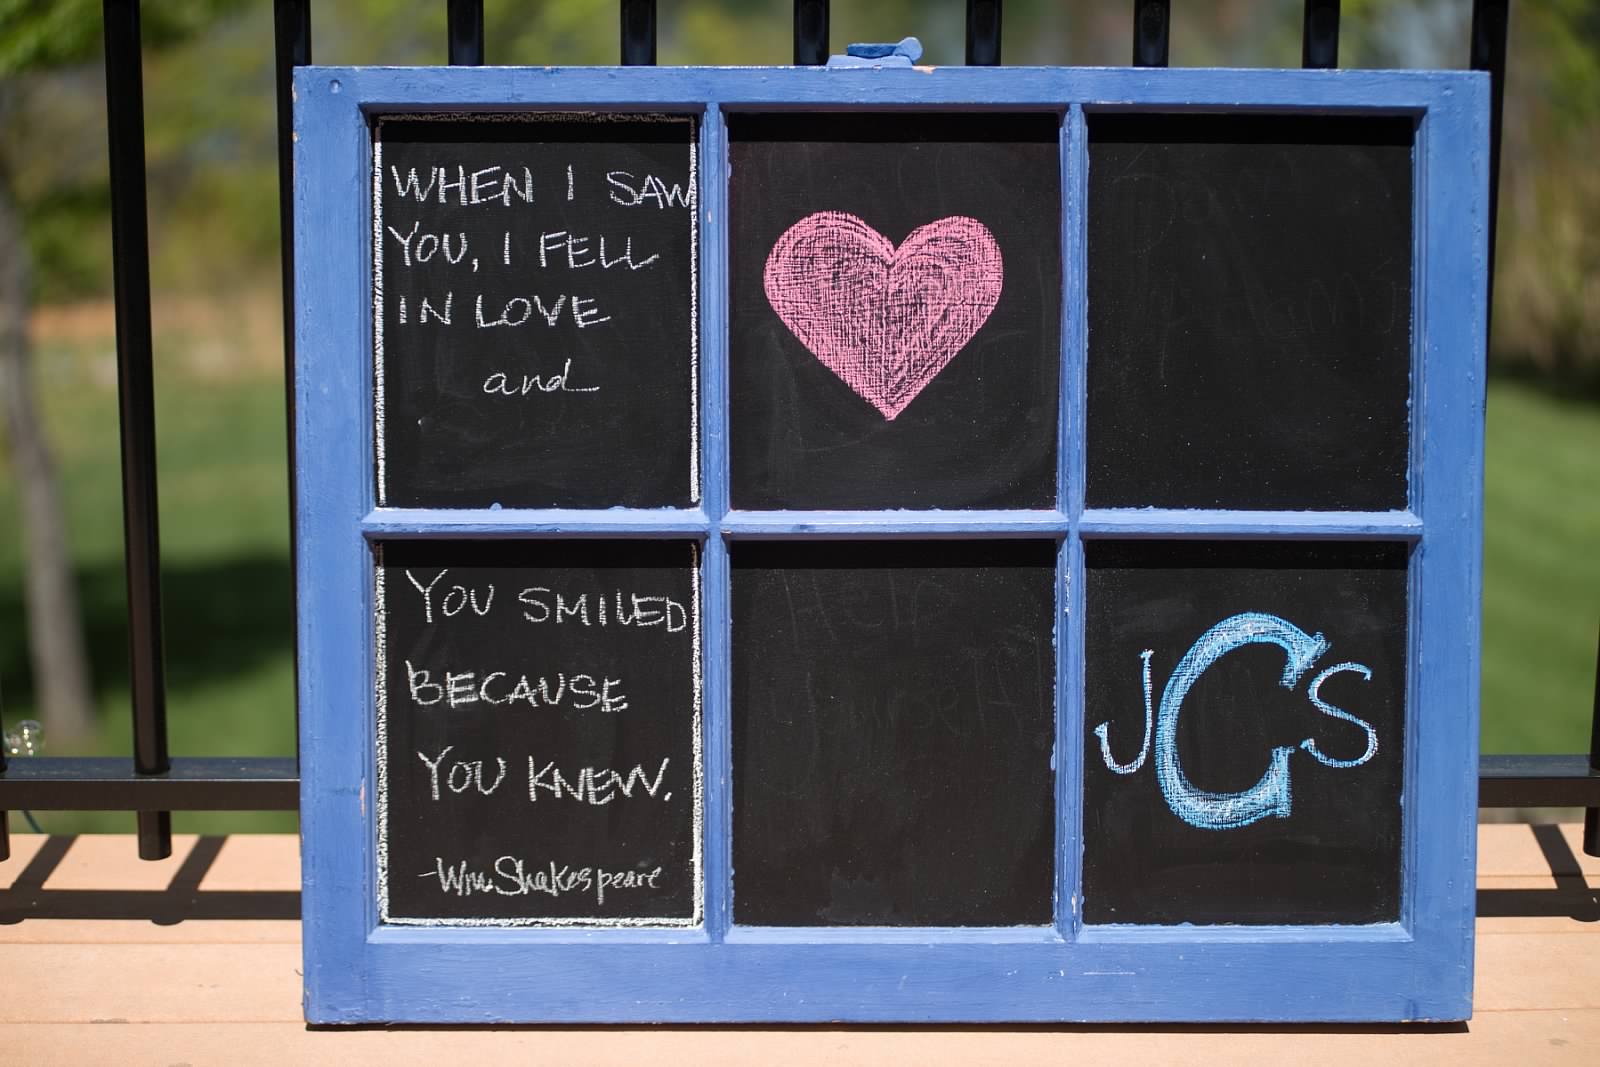 WHEN I SAW
YOU, I FELL
IN LOVE
and
YOU SMILED
BECAUSE
YOU KNEW.
-Wm. Shakespeare
Help
Yourself
JGS